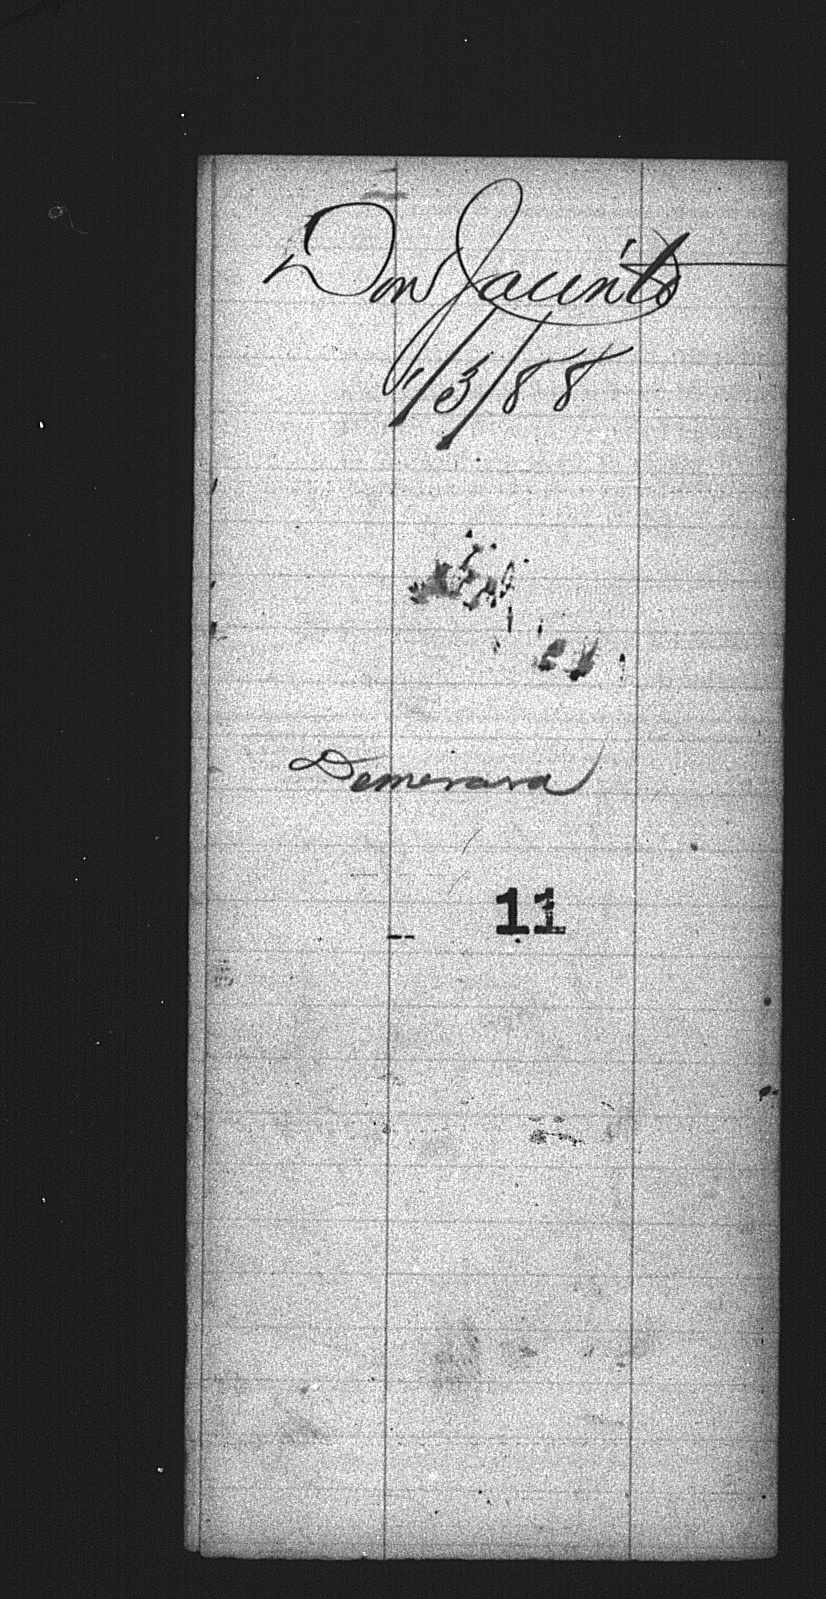 Don Jacinto
1/3/88
Demerara
11